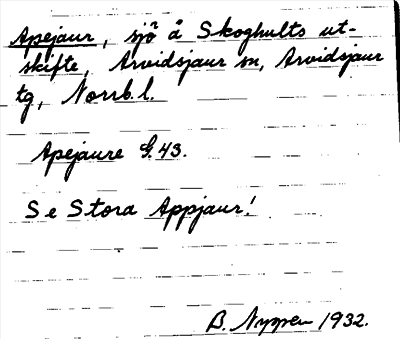 Apejaur, sjö å Skoghults ut-
skifte, Arvidsjaur sn, Arvidsjaur
tg, Norrb. l.
Apejaure G. 43.
Se Stora Appjaur!
B. 1932.